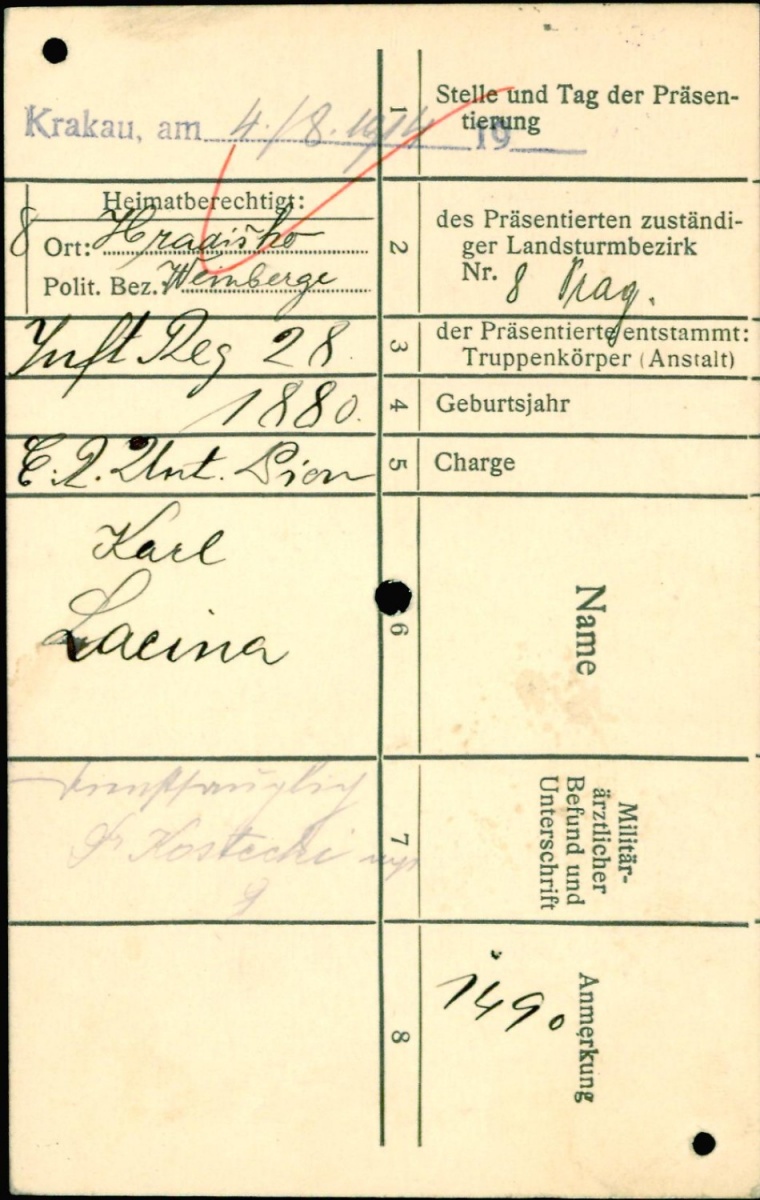 Krakau, am 4./8. 1914 19
1
Stelle und Tag der Präsen-
tierung
Heimatberechtigt:
8
Ort: Hradiško
Polit. Bez.: Weinberge
2
des Präsentierten zuständi-
ger Landsturmbezirk
Nr. 8 Prag.
Inft Reg 28.
3
der Präsentierte entstammt:
Truppenkörper (Anstalt)
1880.
4
Geburtsjahr
5
Charge
Karl
Lacina
6
Name
diensttauglich
Dr Kostecki
7
Militär-
ärztlicher
Befund und
Unterschrift
8
Anmerkung
1490